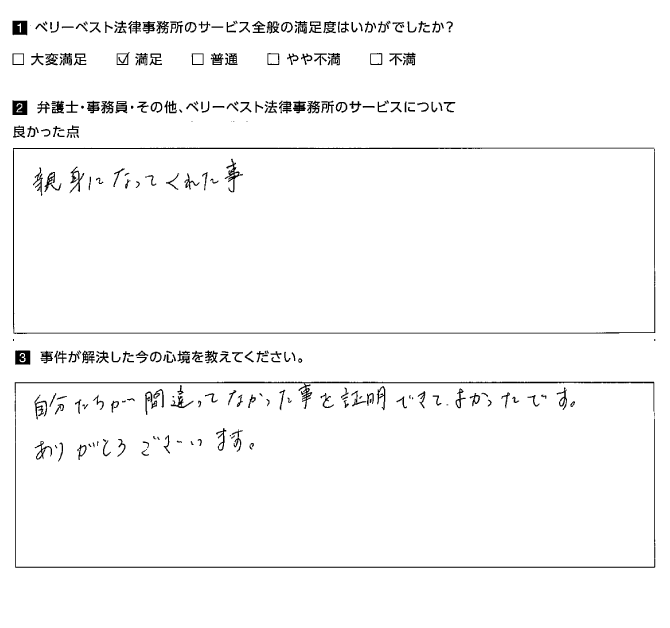 1 ベリーベスト法律事務所のサービス全般の満足度はいかがでしたか？
□ 大変満足 ☑ 満足 □ 普通 □ やや不満 □ 不満
2 弁護士・事務員・その他、ベリーベスト法律事務所のサービスについて
良かった点
親身になってくれた事
3 事件が解決した今の心境を教えてください。
自分たちが間違ってなかった事を証明できて、よかったです。
ありがとうございます。